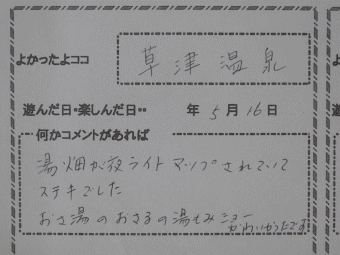 よかったよココ 草津温泉
遊んだ日・楽しんだ日・・ 年 5月 16日
何かコメントがあれば
湯畑が夜ライトアップされていて
ステキでした
おさ湯のおさるの湯もみショー
かわいかったです